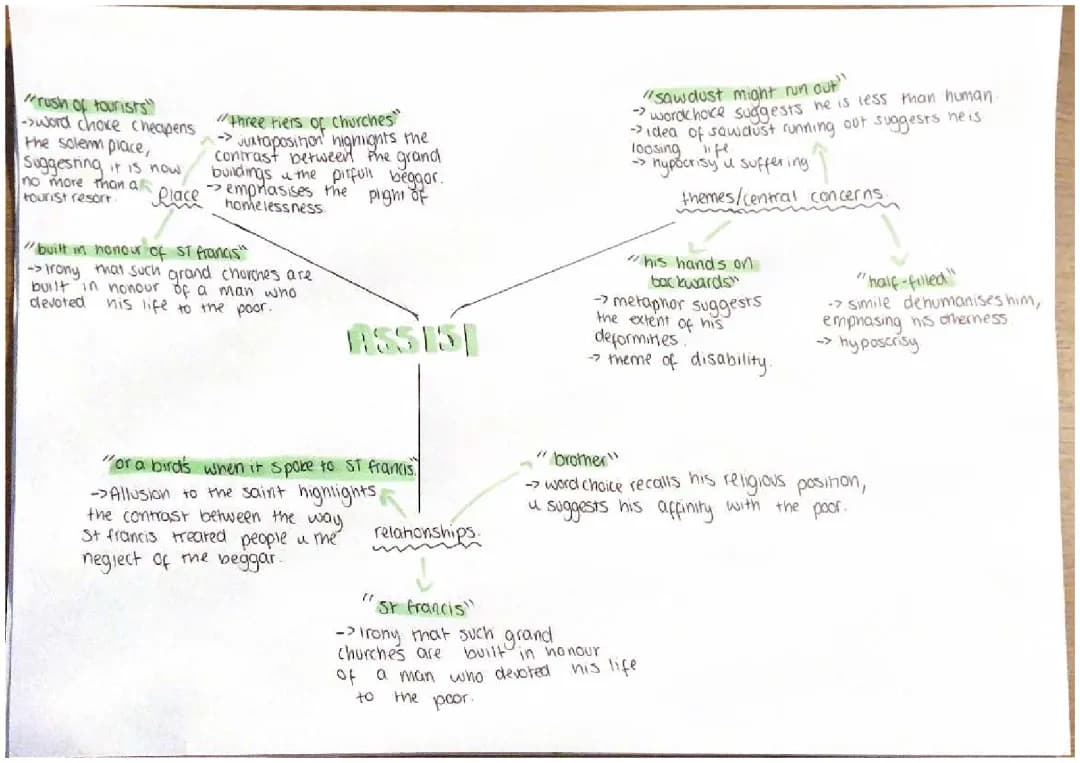 "rush of tourists"
-> word choice cheapens
the solemn place,
suggesting it is now
no more than a
tourist resort.
"three tiers of churches"
-> juxtaposition highlights the
contrast between the grand
buildings & the pitfull beggar.
-> emphasises the plight of
homelessness.
Place
"built in honour of ST francis"
-> Irony that such grand churches are
built in honour of a man who
devoted his life to the poor.
"sawdust might run out"
-> wordchoice suggests he is less than human.
-> idea of sawdust running out suggests he is
loosing life
-> hypocrisy & suffering
themes/central concerns.
"his hands on
backwards"
-> metaphor suggests
the extent of his
deformities.
-> theme of disability.
"half-filled"
-> simile dehumanises him,
emphasing his otherness
-> hyposcrisy
ASSISI
"or a bird's when it spoke to ST francis.
-> Allusion to the saint highlights
the contrast between the way
St francis treated people & the
neglect of the beggar.
"brother"
-> word choice recalls his religious position,
& suggests his affinity with the poor.
relationships.
"St francis"
-> Irony that such grand
churches are built in honour
of a man who devoted his life
to the poor.